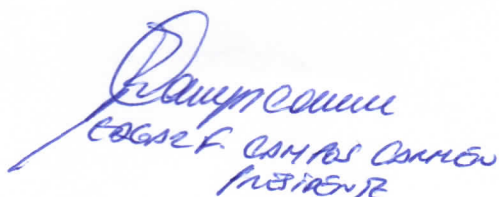 EDGAR F CAMPOS CARMEN
PRESIDENTE